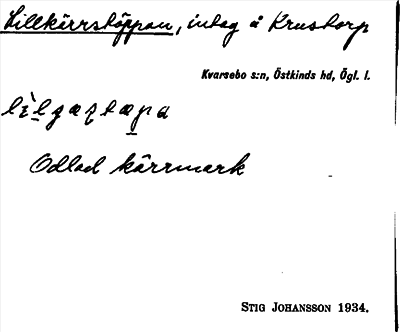 Lillkärrstäppan, intag å Krustorp
Kvarsebo s:n, Östkinds hd, Ögl. l.
Odlad kärrmark
STIG JOHANSSON 1934.